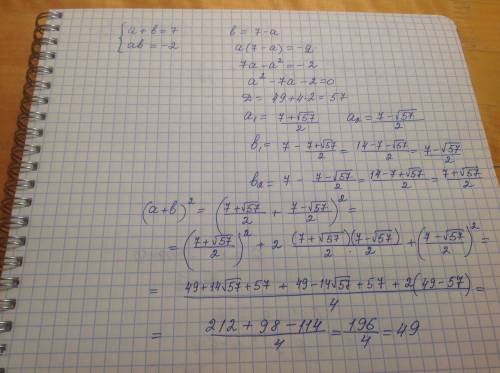 {a+b=7    b = 7-a
{ab=-2    a(7-a)=-2
7a-a²=-2
a²-7a-2=0
D = 49+4·2=57
a₁ = (7+√57)/2    a₂ = (7-√57)/2
b₁ = 7 - (7+√57)/2 = (14-7-√57)/2 = (7-√57)/2
b₂ = 7 - (7-√57)/2 = (14-7+√57)/2 = (7+√57)/2
(a+b)² = ((7+√57)/2 + (7-√57)/2)² =
= ((7+√57)/2)² + 2 (7+√57)(7-√57)/(2·2) + ((7-√57)/2)² =
= (49+14√57+57 + 49-14√57+57 + 2(49-57))/4 =
= (212+98-114)/4 = 196/4 = 49